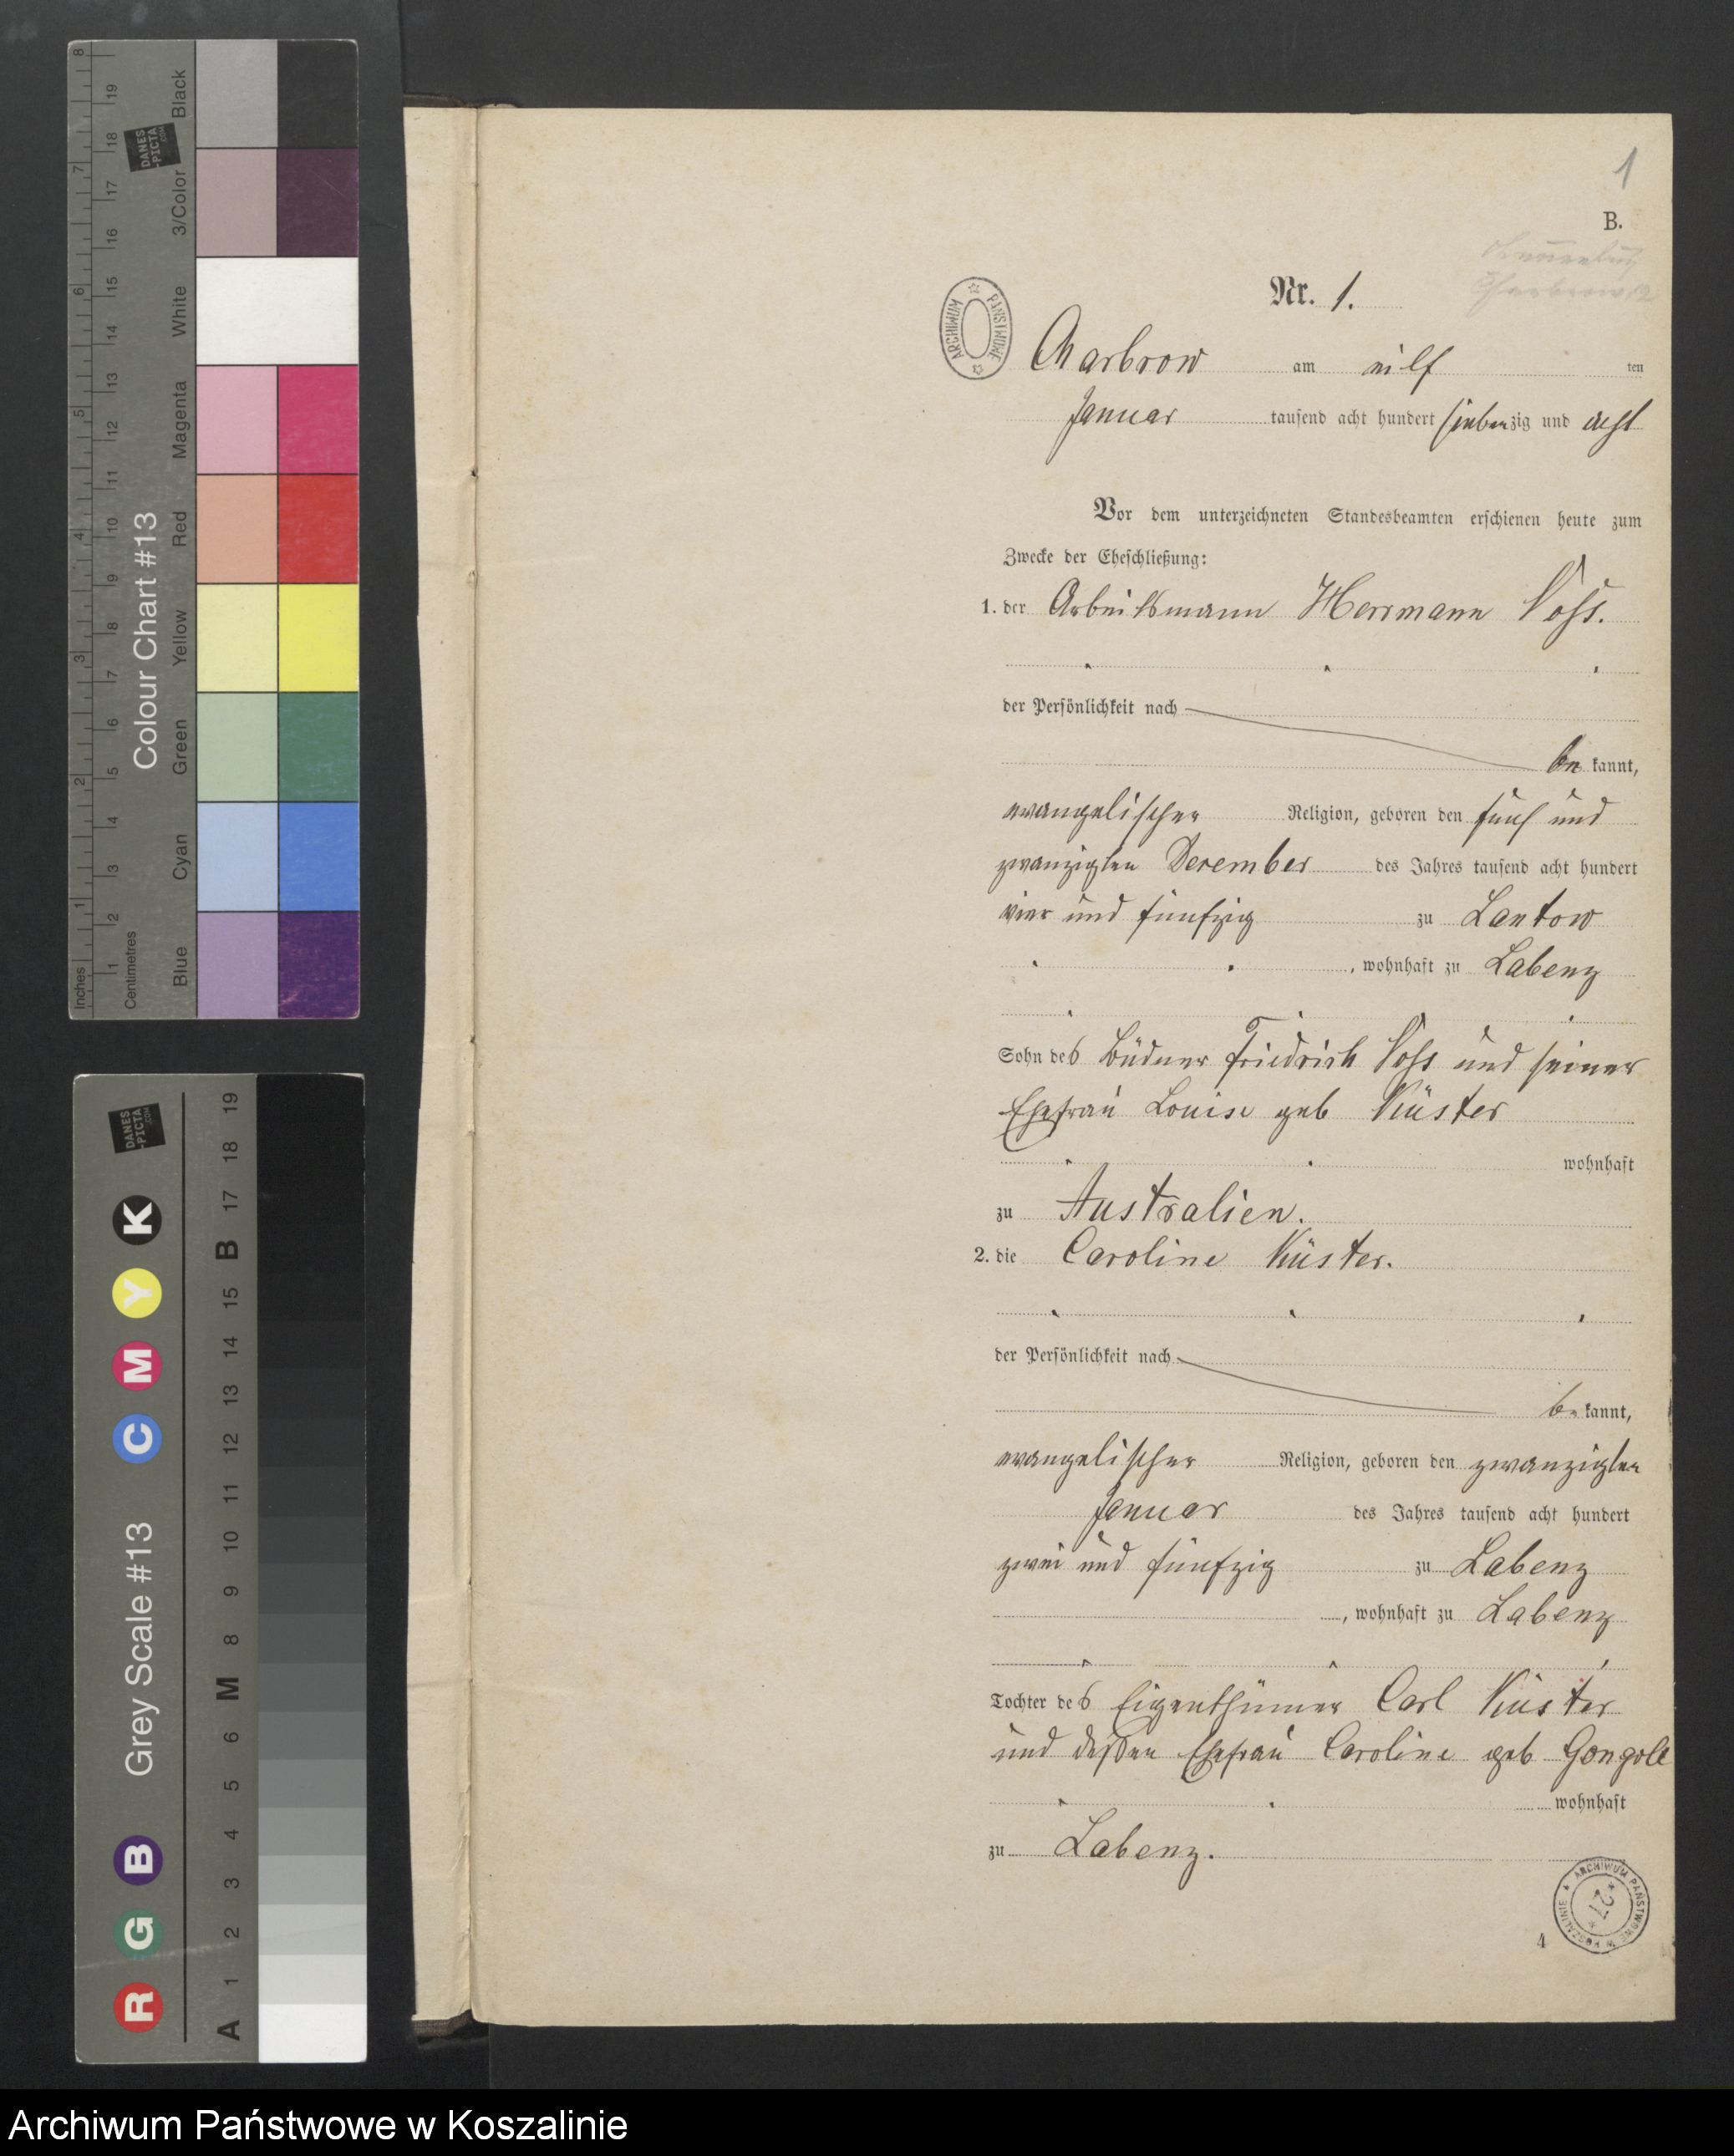 1
B.
Nr. 1.
ARCHIWUM PAŃSTWOWE
Charbrow am eilf ten
Januar tausend acht hundert siebenzig und acht
Vor dem unterzeichneten Standesbeamten erschienen heute zum
Zwecke der Eheschließung:
1. der Arbeitsmann Herrmann Voss.
der Persönlichkeit nach
be kannt,
evangelischer Religion, geboren den fünf und
zwanzigten December des Jahres tausend acht hundert
vier und fünfzig zu Lantow
, wohnhaft zu Labenz
Sohn des Büdner Friedrich Voss und seiner
Ehefrau Louise geb Küster
wohnhaft
zu Australien.
2. die Caroline Küster.
der Persönlichkeit nach
be kannt,
evangelischer Religion, geboren den zwanzigten
Januar des Jahres tausend acht hundert
zwei und fünfzig zu Labenz
, wohnhaft zu Labenz
Tochter des Eigenthümer Carl Küster
und dessen Ehefrau Caroline geb Gongoll
wohnhaft
zu Labenz.
ARCHIWUM PAŃSTWOWE W KOSZALINIE
27
4
Colour Chart #13
Blue Cyan Green Yellow Red Magenta White 3/Color Black
Inches 1 2 3 4 5 6 7 8
Centimetres 1 2 3 4 5 6 7 8 9 10 11 12 13 14 15 16 17 18 19
DANES
-PICTA
.COM
Grey Scale #13
R G B C M Y K
A 1 2 3 4 5 6 M 8 9 10 11 12 13 14 15 B 17 18 19
DANES
-PICTA
.COM
Archiwum Państwowe w Koszalinie